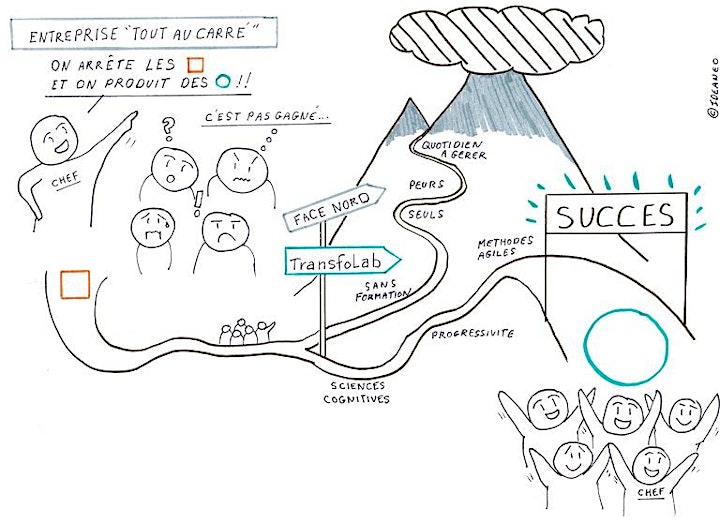 ENTREPRISE "TOUT AU CARRÉ"
ON ARRÊTE LES
ET ON PRODUIT DES !!
C'EST PAS GAGNÉ...
?
!
CHEF
QUOTIDIEN
A GERER
PEURS
SEULS
SANS
FORMATION
FACE NORD
TRANSFOLAB
METHODES
AGILES
PROGRESSIVITE
SCIENCES
COGNITIVES
SUCCES
CHEF
© IDEANEO